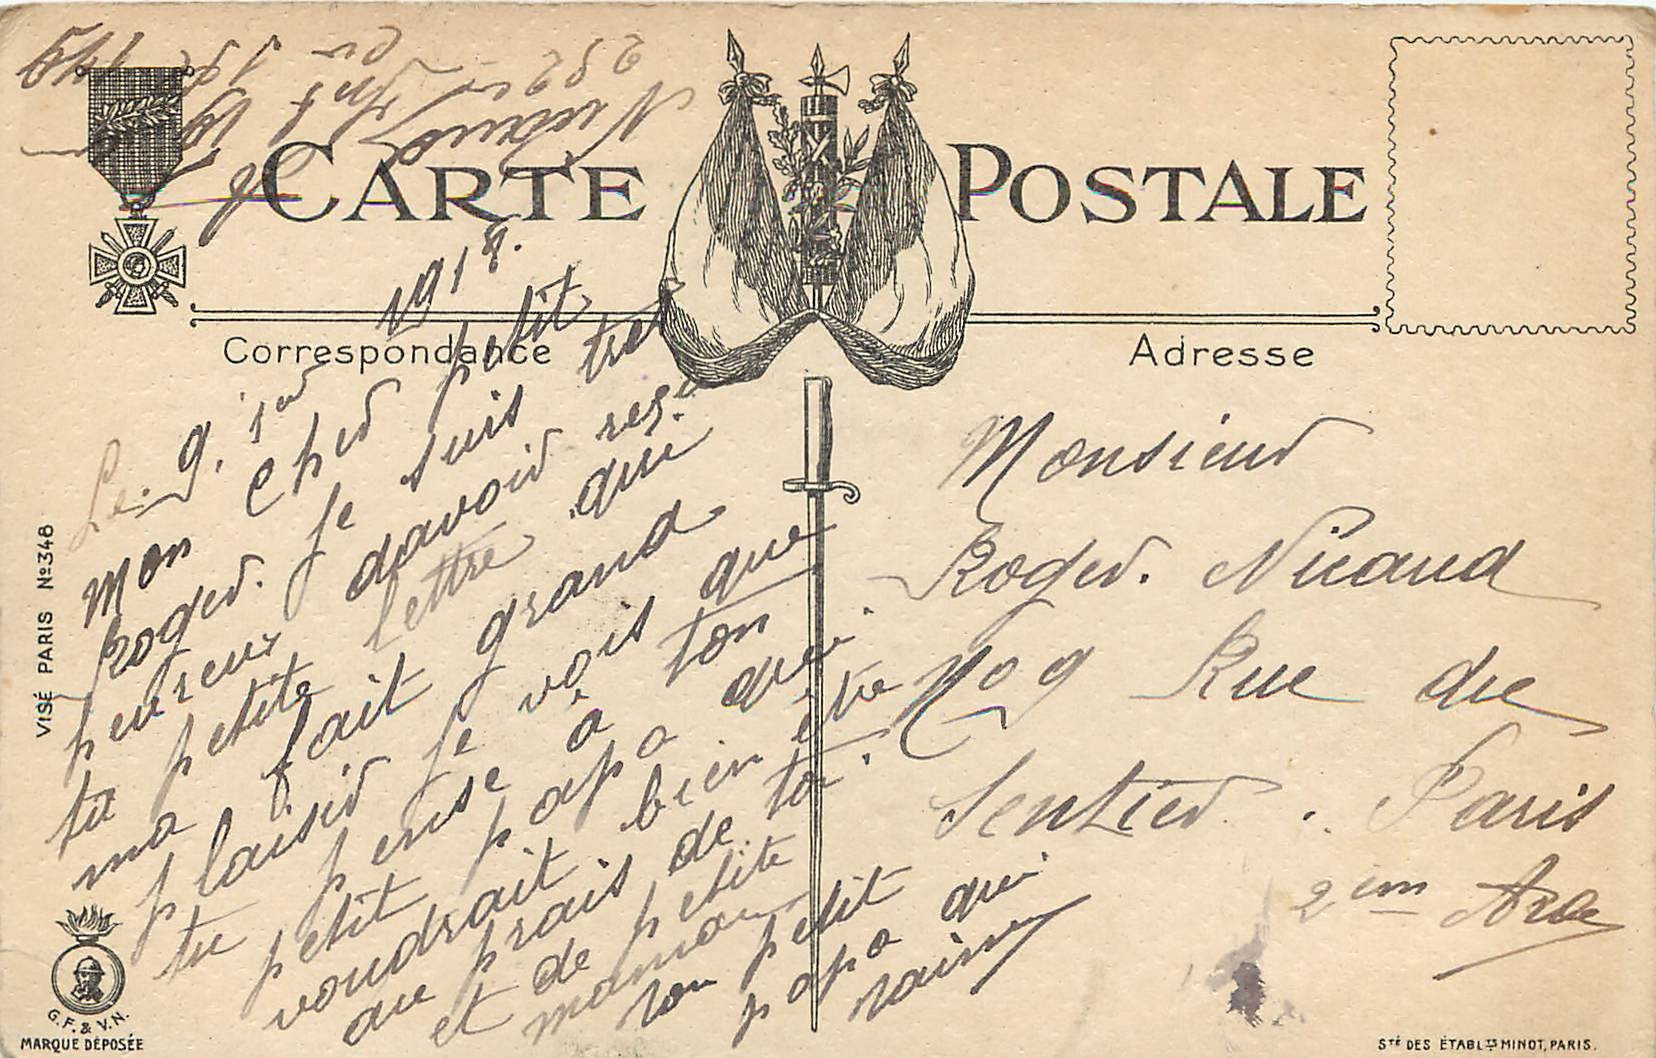 CARTE POSTALE
Correspondance
Adresse
Le 9. 1918.
Mon cher petit
Roger. Je suis tres
heureux davoir reçu
ta petite lettre qui
ma fait grand
plaisir je vois que
tu pense à ton
petit papa qui
voudrait bien être
au prais de toi
et de petite
maman
ton petit
papa qui
Monsieur
Roger. Nicaud
No 9 Rue du
Sentier. Paris
2em Are
VISÉ PARIS No 348
G.F. & V.N.
MARQUE DÉPOSÉE
STÉ DES ÉTABLTS MINOT, PARIS.